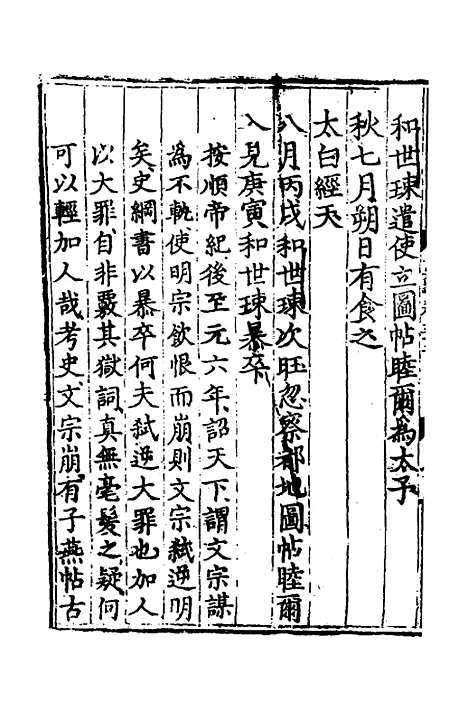 和世㻋遣使立圖帖睦爾爲太子
秋七月朔日有食之
太白經天
八月丙戌和世㻋次旺忽察都地圖帖睦爾
入見庚寅和世㻋暴卒
按順帝紀後至元六年詔天下謂文宗謀
爲不軌使明宗飲恨而崩則文宗弑逆明
矣史綱書以暴卒何夫弑逆大罪也加人
以大罪自非覈其獄詞真無毫髮之疑何
可以輕加人哉考史文宗崩有子燕帖古